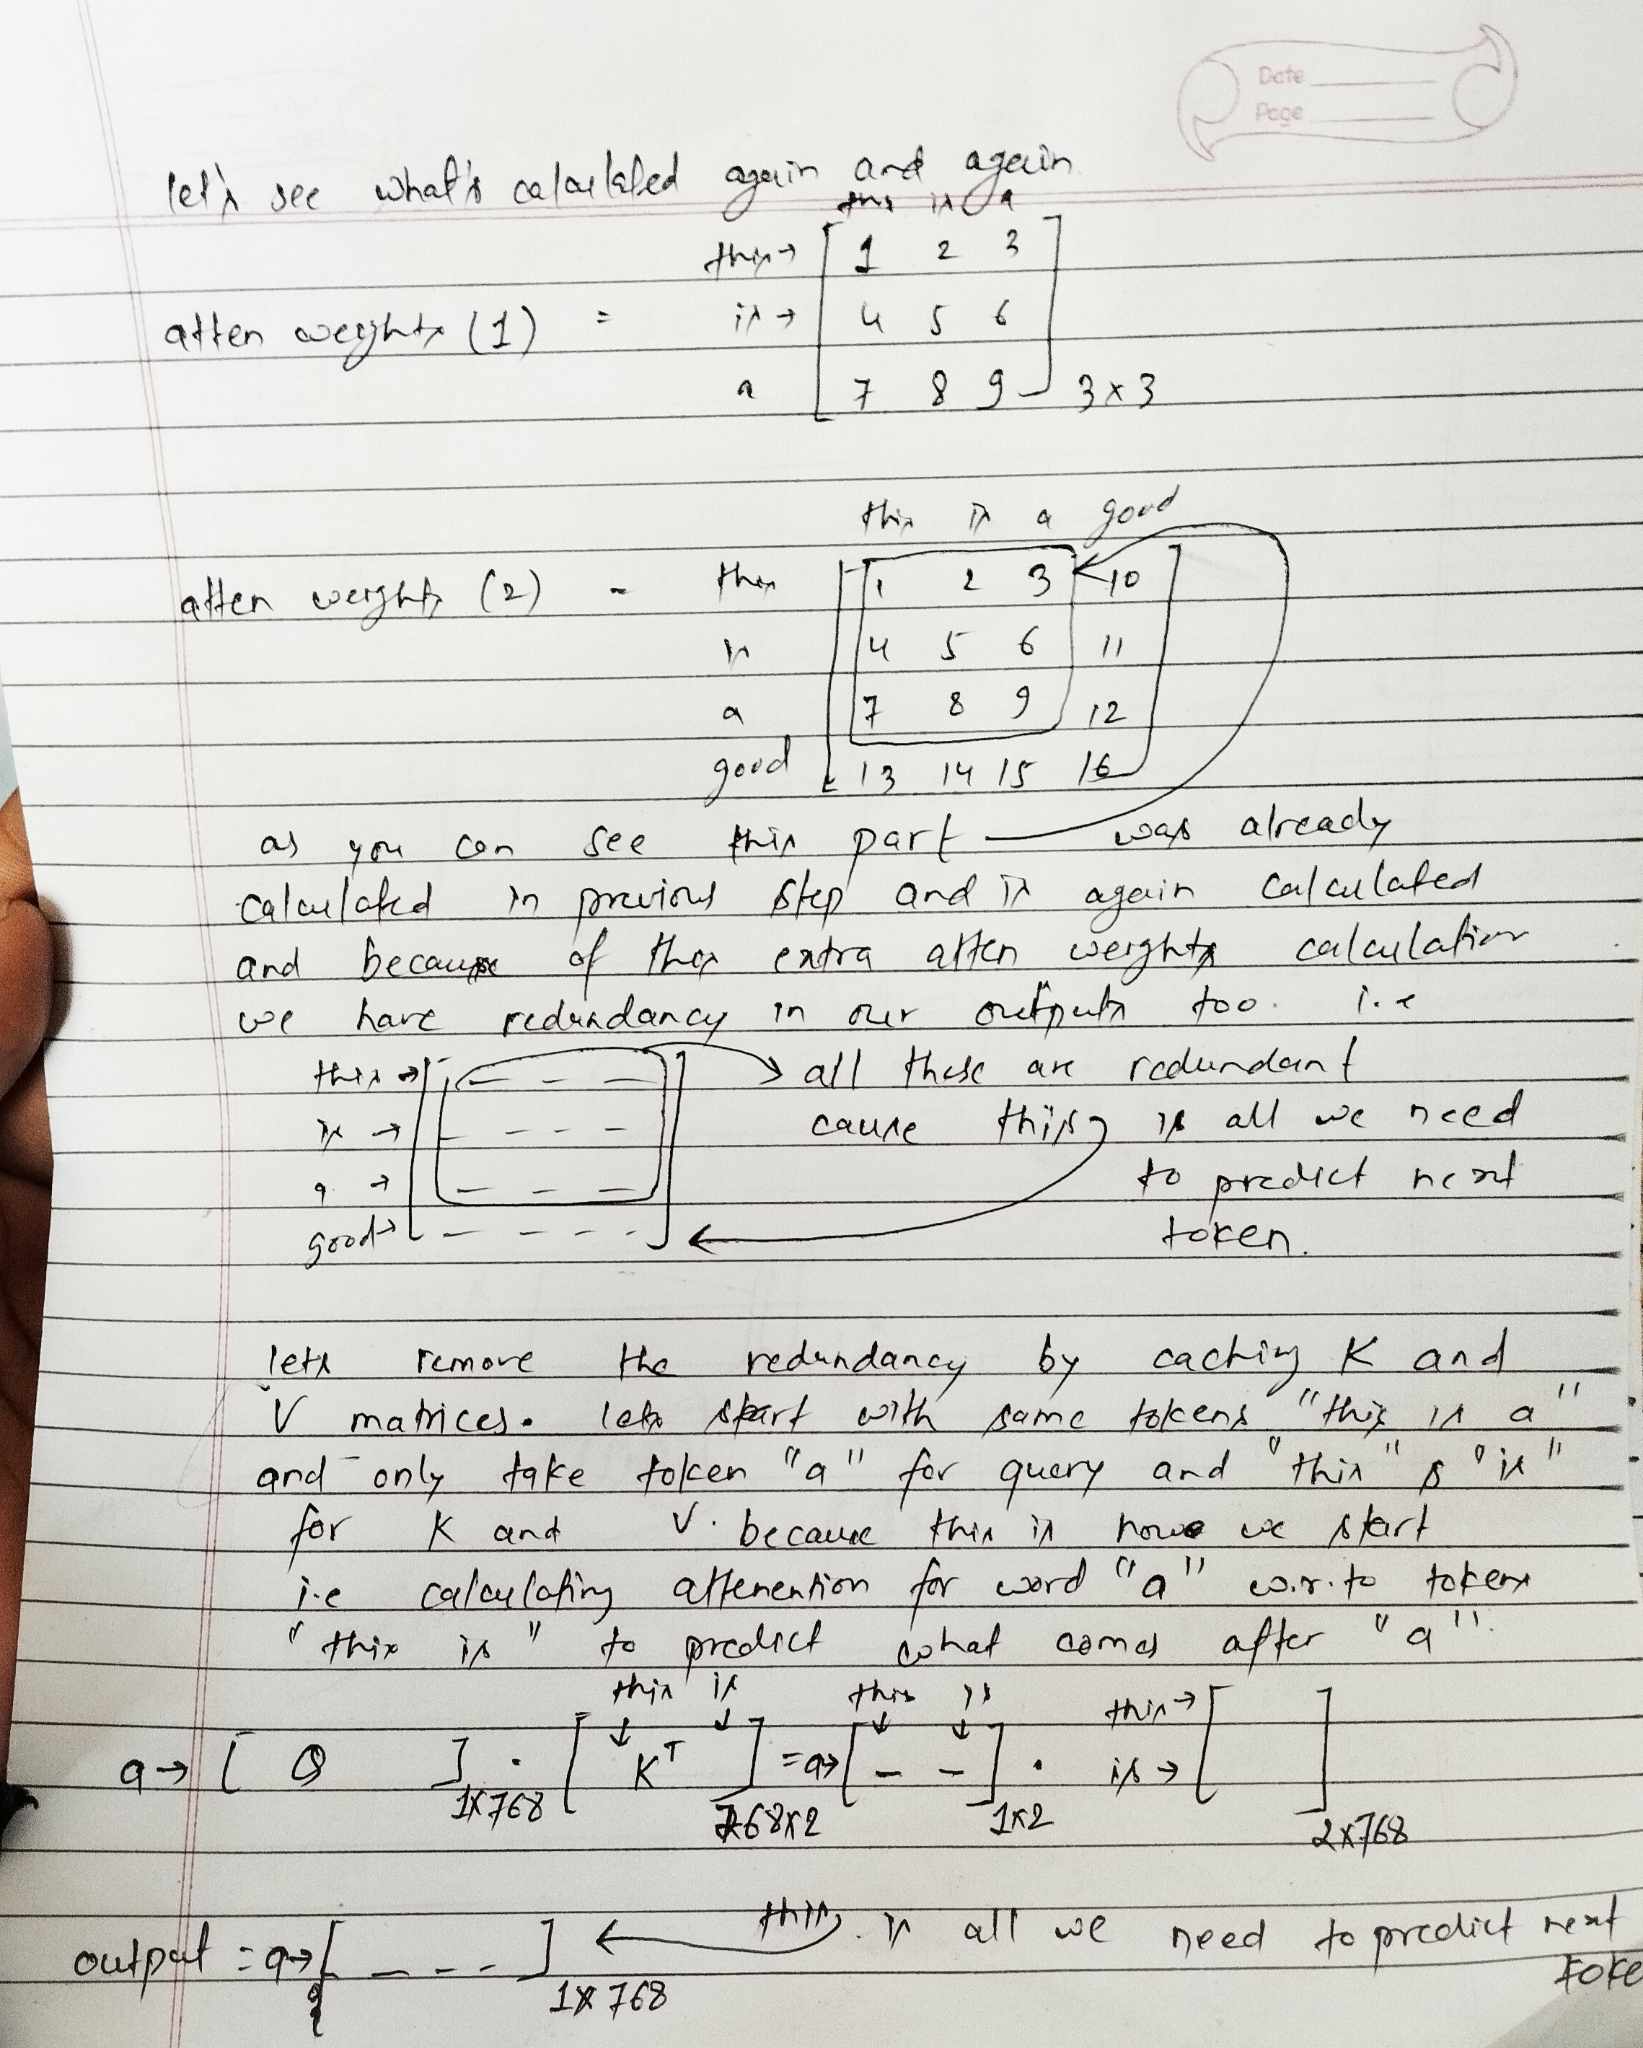 Date
Page
let's see what's calculated again and again
this is a
this → 1 2 3
atten weights (1) = is → 4 5 6
a 7 8 9 3x3
this is a good
atten weights (2) - this 1 2 3 10
is 4 5 6 11
a 7 8 9 12
good 13 14 15 16
as you can see this part was already
calculated in previous step and is again calculated
and because of this extra atten weights calculation
we have redundancy in our outputs too. i.e
this → _ _ _ all these are redundant
is → _ _ _ _ cause this is all we need
a → _ _ _ to predict next
good → _ _ _ _ token.
lets remove the redundancy by caching K and
V matrices. lets start with same tokens "this is a"
and only take token "a" for query and "this" & "is"
for K and V. because this is how we start
i.e calculating attenention for word "a" w.r.to tokens
"this is" to predict what comes after "a".
this is this is this →
a → [ Q ] 1x768 . [ K^T ] 768x2 = a → [ _ _ ] 1x2 . is → [ ] 2x768
output = a → [ _ _ _ _ ] 1x768 ← this is all we need to predict next
toke